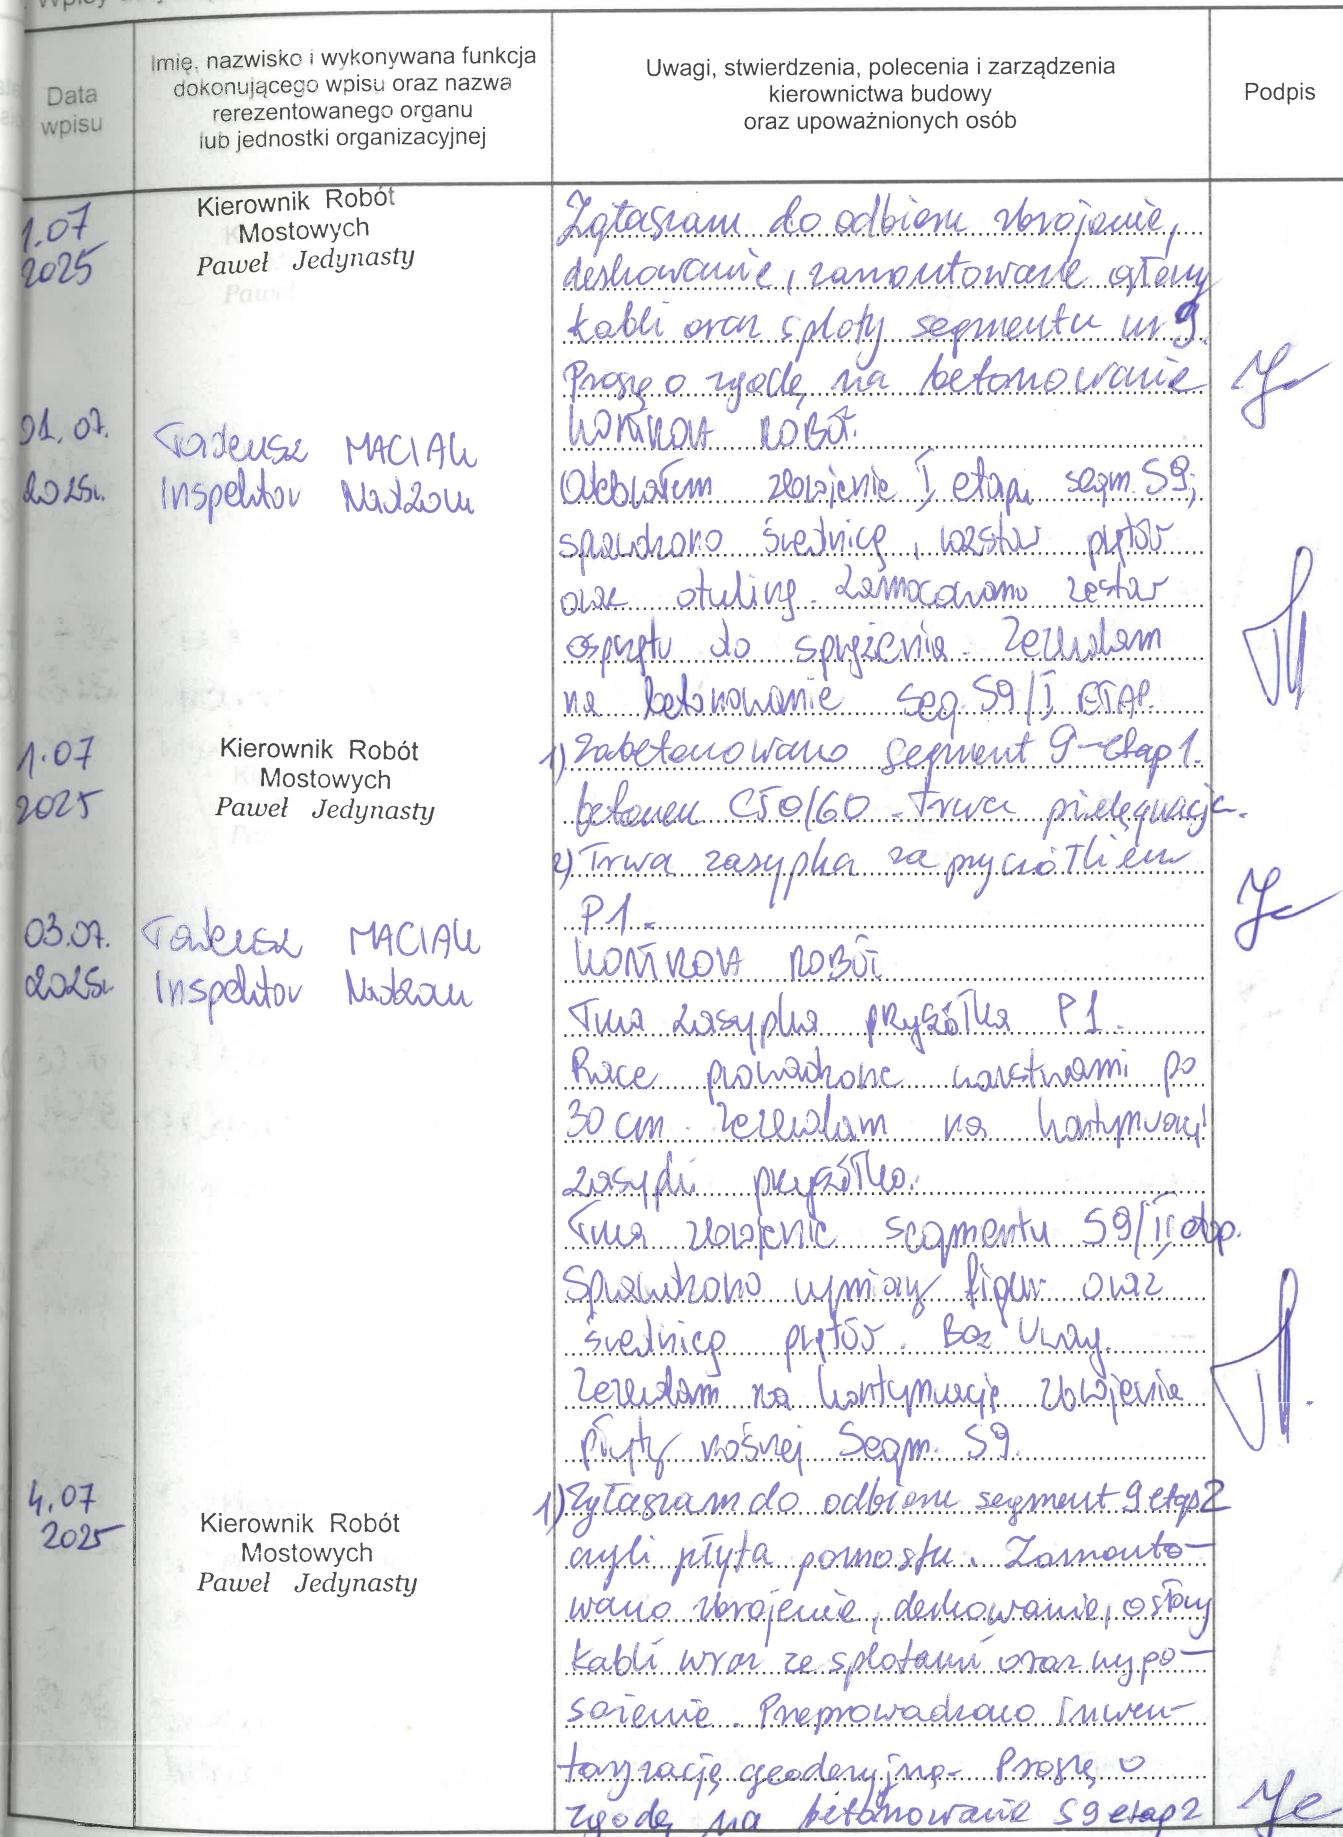 Data
wpisu
Imię, nazwisko i wykonywana funkcja
dokonującego wpisu oraz nazwa
rerezentowanego organu
lub jednostki organizacyjnej
Uwagi, stwierdzenia, polecenia i zarządzenia
kierownictwa budowy
oraz upoważnionych osób
Podpis
1.07
2025
Kierownik Robót
Mostowych
Paweł Jedynasty
Zgłaszam do odbioru zbrojenie,
deskowanie, zamontowane osłony
kabli oraz sploty segmentu nr 9.
Proszę o zgodę na betonowanie
01.07.
2025r.
Tadeusz MACIAK
Inspektor Nadzoru
KONTROLA ROBÓT.
Odebrałem zbrojenie I etapu segm. S9;
sprawdzono średnicę, rozstaw prętów
oraz otulinę. Zamocowano zestaw
osprzętu do sprężenia. Zezwalam
na betonowanie seg. S9/I ETAP.
1.07
2025
Kierownik Robót
Mostowych
Paweł Jedynasty
1) Zabetonowano segment 9 - etap 1.
betonem C50/60 - Trwa pielęgnacja.
2) Trwa zasypka za przyczółkiem
P1.
03.07.
2025r.
Tadeusz MACIAK
Inspektor Nadzoru
KONTROLA ROBÓT
Trwa zasypka przyczółka P1.
Prace prowadzone warstwami po
30 cm. Zezwalam na kontynuację
zasypki przyczółka.
Trwa zbrojenie segmentu S9/II etap.
Sprawdzono wymiary figur oraz
średnicę prętów. Bez Uwag.
Zezwalam na kontynuację zbrojenia
płyty nośnej Segm. S9.
4.07
2025
Kierownik Robót
Mostowych
Paweł Jedynasty
1) Zgłaszam do odbioru segment 9 etap 2
czyli płyta pomostu. Zamonto-
wano zbrojenie, deskowanie, osłony
kabli wraz ze splotami oraz wypo-
sażenie. Przeprowadzono inwen-
taryzację geodezyjną. Proszę o
zgodę na betonowanie S9 etap 2